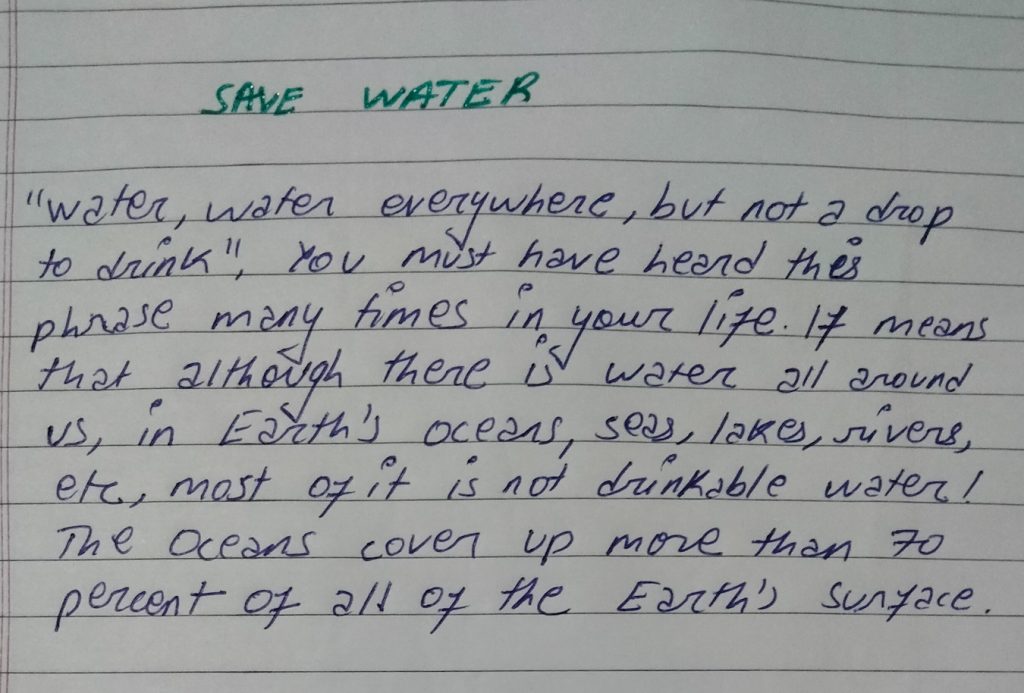 SAVE WATER
"water, water everywhere, but not a drop
to drink", You must have heard this
phrase many times in your life. It means
that although there is water all around
us, in Earth's oceans, seas, lakes, rivers,
etc., most of it is not drinkable water!
The Oceans cover up more than 70
percent of all of the Earth's surface.